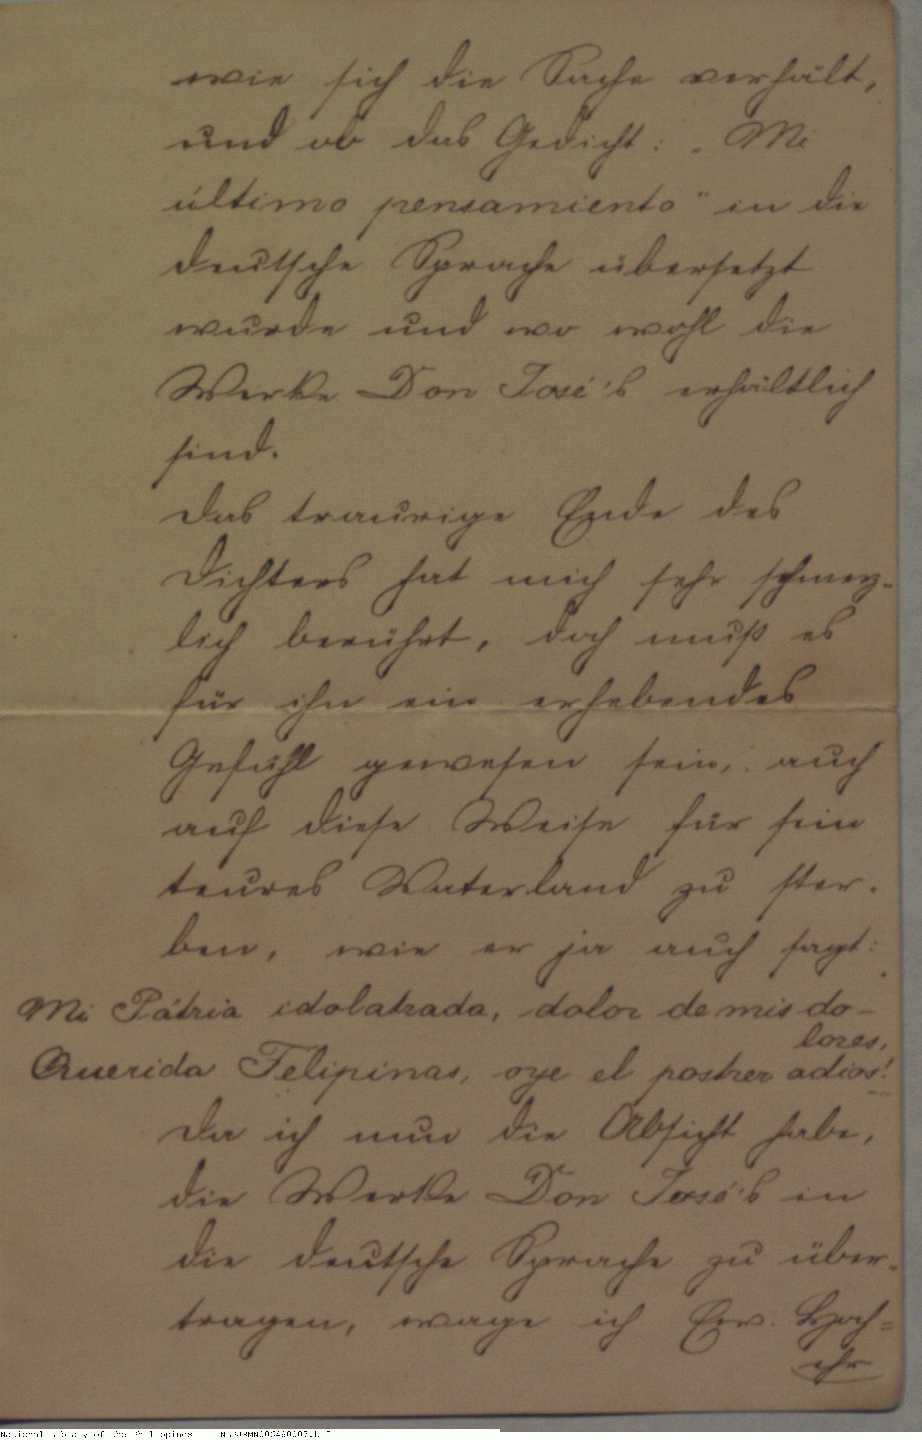 wie sich die Sache verhält,
und ob das Gedicht: „Mi
último pensamiento" in die
deutsche Sprache übersetzt
wurde und wo wohl die
Werke Don José's erhältlich
sind.
Das traurige Ende des
Dichters hat mich sehr schmerz-
lich berührt, doch muß es
für ihn ein erhebendes
Gefühl gewesen sein, auch
auf diese Weise für sein
teures Vaterland zu ster-
ben, wie er ja auch sagt:
Mi Pátria idolatrada, dolor de mis do-
lores,
Querida Felipinas, oye el postrer adios!
Da ich nun die Absicht habe,
die Werke Don José's in
die deutsche Sprache zu über-
tragen, wage ich Euv. Hoch-
ehr
National Library of the Philippines